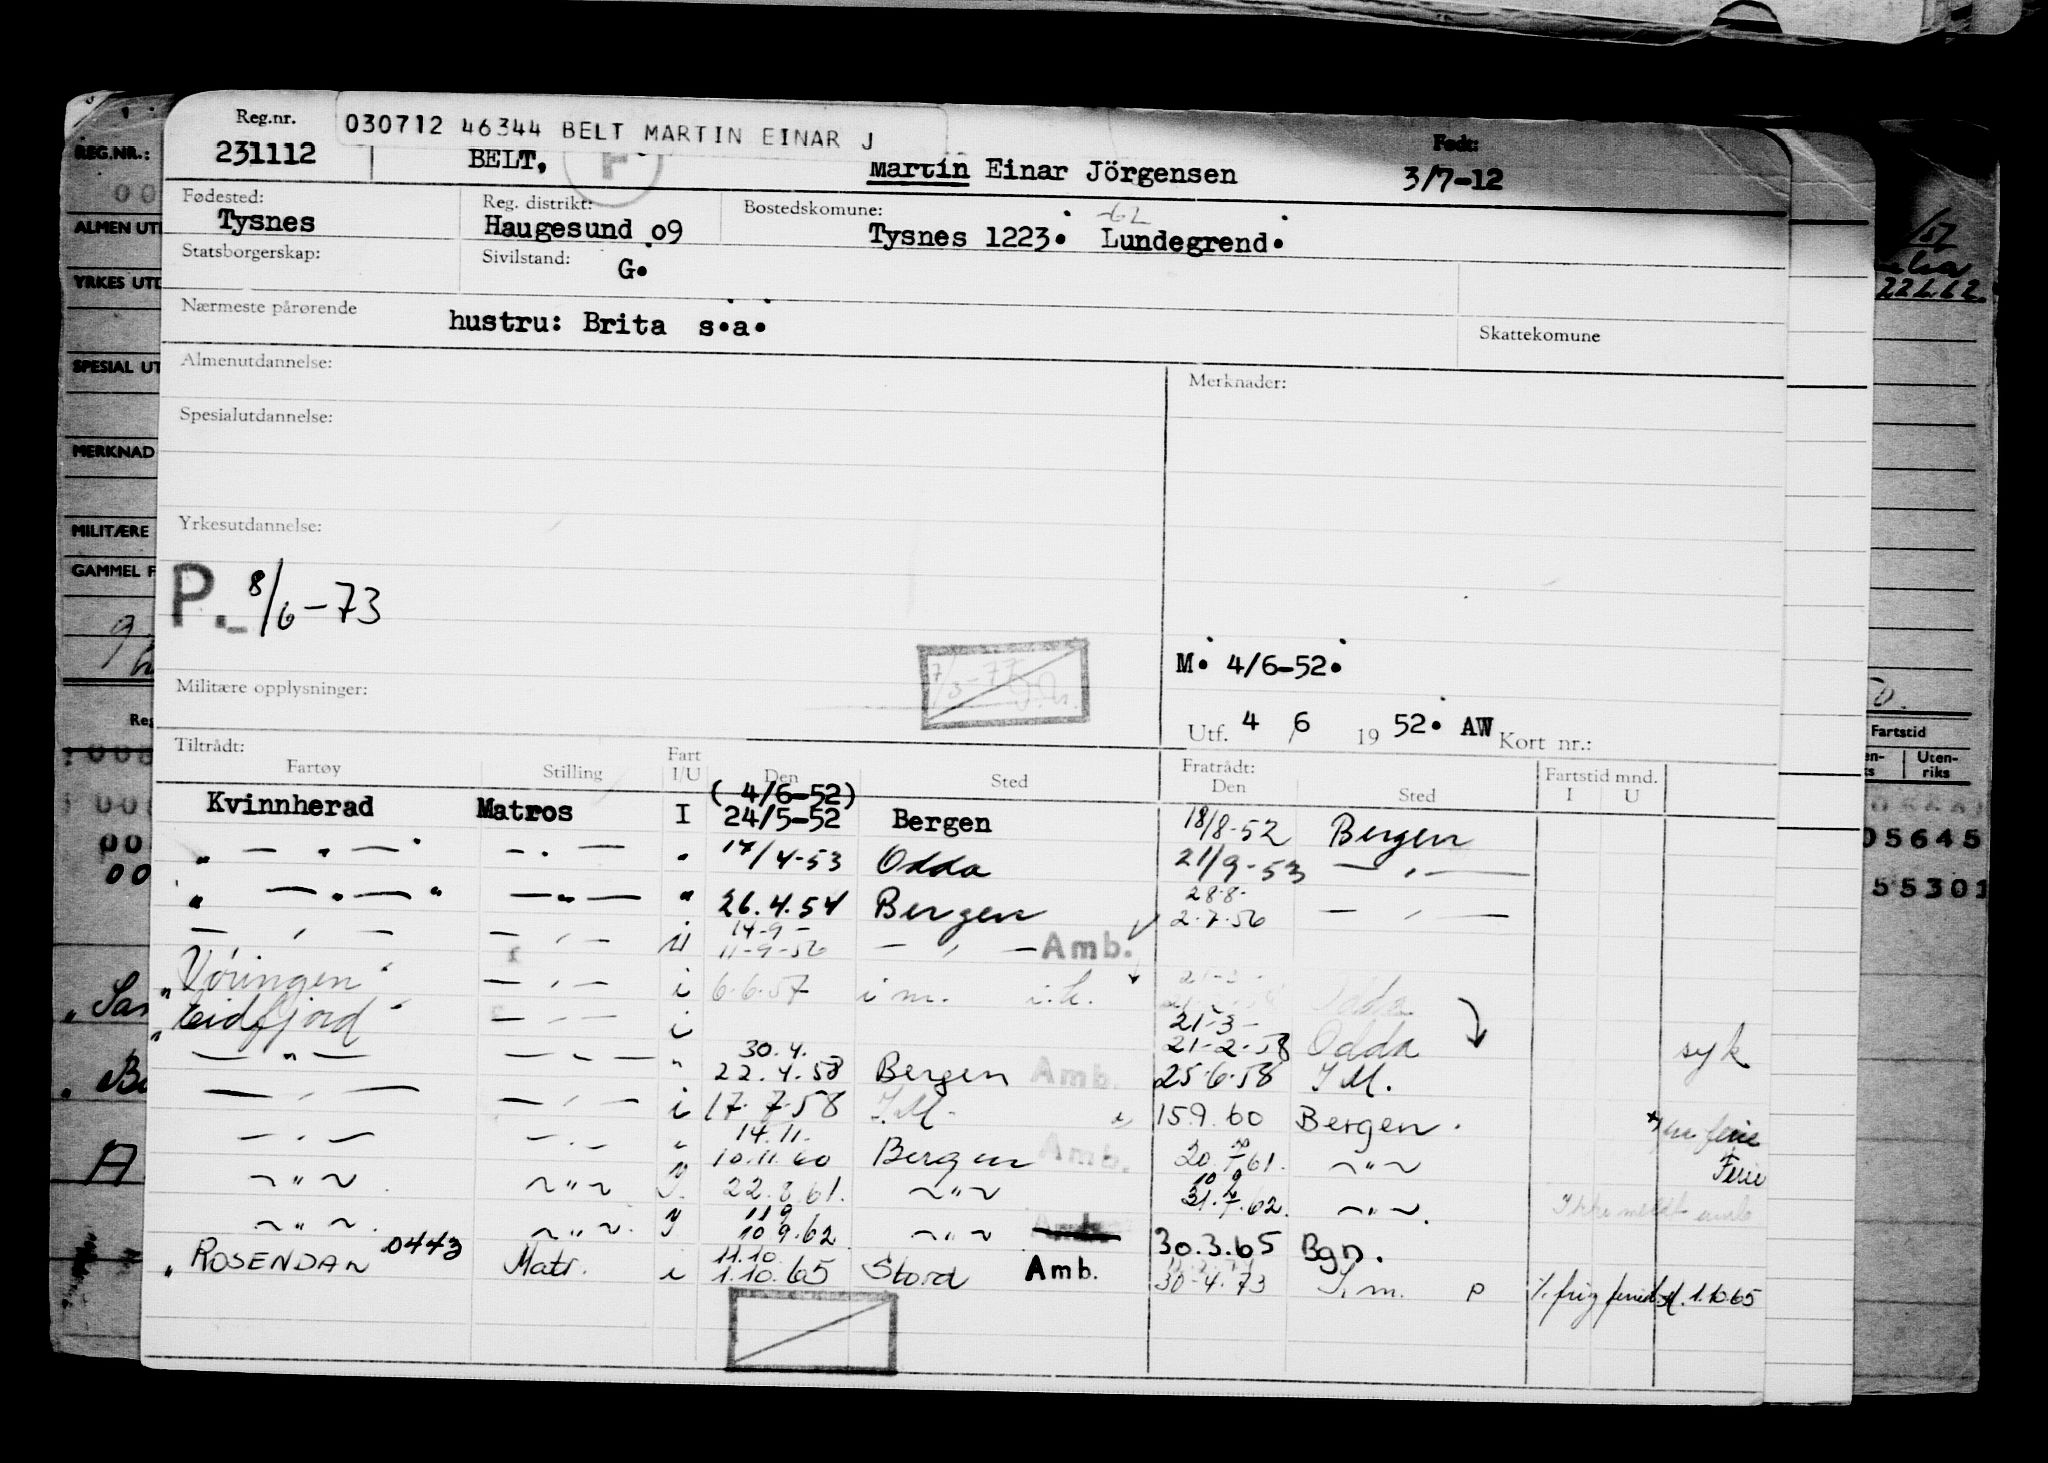 Reg.nr. 030712 46344 BELT MARTIN EINAR J Født:
231112 BELT, Martin Einar Jörgensen 3/7-12
Fødested: Reg. distrikt: Bostedskomune: -62
Tysnes Haugesund o9 Tysnes 1223. Lundegrend.
Statsborgerskap: Sivilstand: G.
Nærmeste pårørende hustru: Brita s.a. Skattekomune
Almenutdannelse: Merknader:
Spesialutdannelse:
Yrkesutdannelse:
P. 8/6-73
M. 4/6-52.
Militære opplysninger:
Utf. 4 6 19 52. AW Kort nr.:
Tiltrådt: Fratrådt:
Fartøy Stilling Fart I/U Den Sted Den Sted Fartstid mnd. I U
(4/6-52)
Kvinnherad Matros I 24/5-52 Bergen 18/8-52 Bergen
" — " — " — " — " 17/4-53 Odda 21/9-53 — " —
28.8-
" — " — " — " — " 26.4.54 Bergen 2.7.56 — " —
14-9-
— " — — " — 11-9-56 — " — Amb.
" Vöringen " — " — i 6.6.57 i m. i.h.
21-3-
" Eidfjord " — " — i 21-2-58 Odda syk
30.4.
— " — — " — " 22.4.58 Bergen Amb. 25.6.58 I M.
— " — — " — i 17.7.58 I.M. 15.9.60 Bergen. ferie
14.11.
— " — — " — " 10.11.60 Bergen Amb. 20. 61. ~ " ~ Ferie
10 9
~ " ~ ~ " ~ 22.8.61. ~ " ~ 31. 62. ~ " ~ Ikke meldt amb
11 9
~ " ~ ~ " ~ 10 9.62 ~ " ~ 30.3.65 Bgn.
11.10
" ROSENDAN 0443 Matr. i 1.10.65 Stord Amb. 30-4.73 I. m. P 1.10.65
REG.NR.:
ALMEN UT
YRKES UTD
SPESIAL UT
MERKNAD
MILITÆRE
GAMMEL F
Reg
22.6.62
Fartstid
Uten-
riks
05645
55301